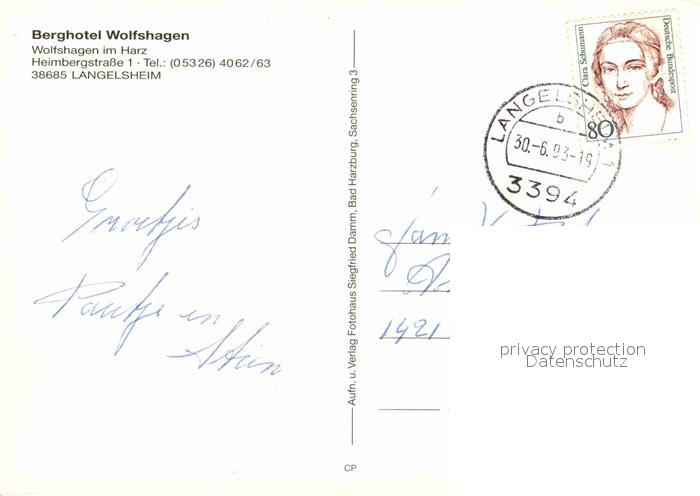 Berghotel Wolfshagen
Wolfshagen im Harz
Heimbergstraße 1 · Tel.: (05326) 4062/63
38685 LANGELSHEIM
Aufn. u. Verlag Fotohaus Siegfried Damm, Bad Harzburg, Sachsenring 3
Clara Schumann
Deutsche Bundespost
80
LANGELSHEIM 1
b
30.-6.93-19
3394
Groetjes
Pautje en
Stien
Jan
1421
privacy protection
Datenschutz
CP